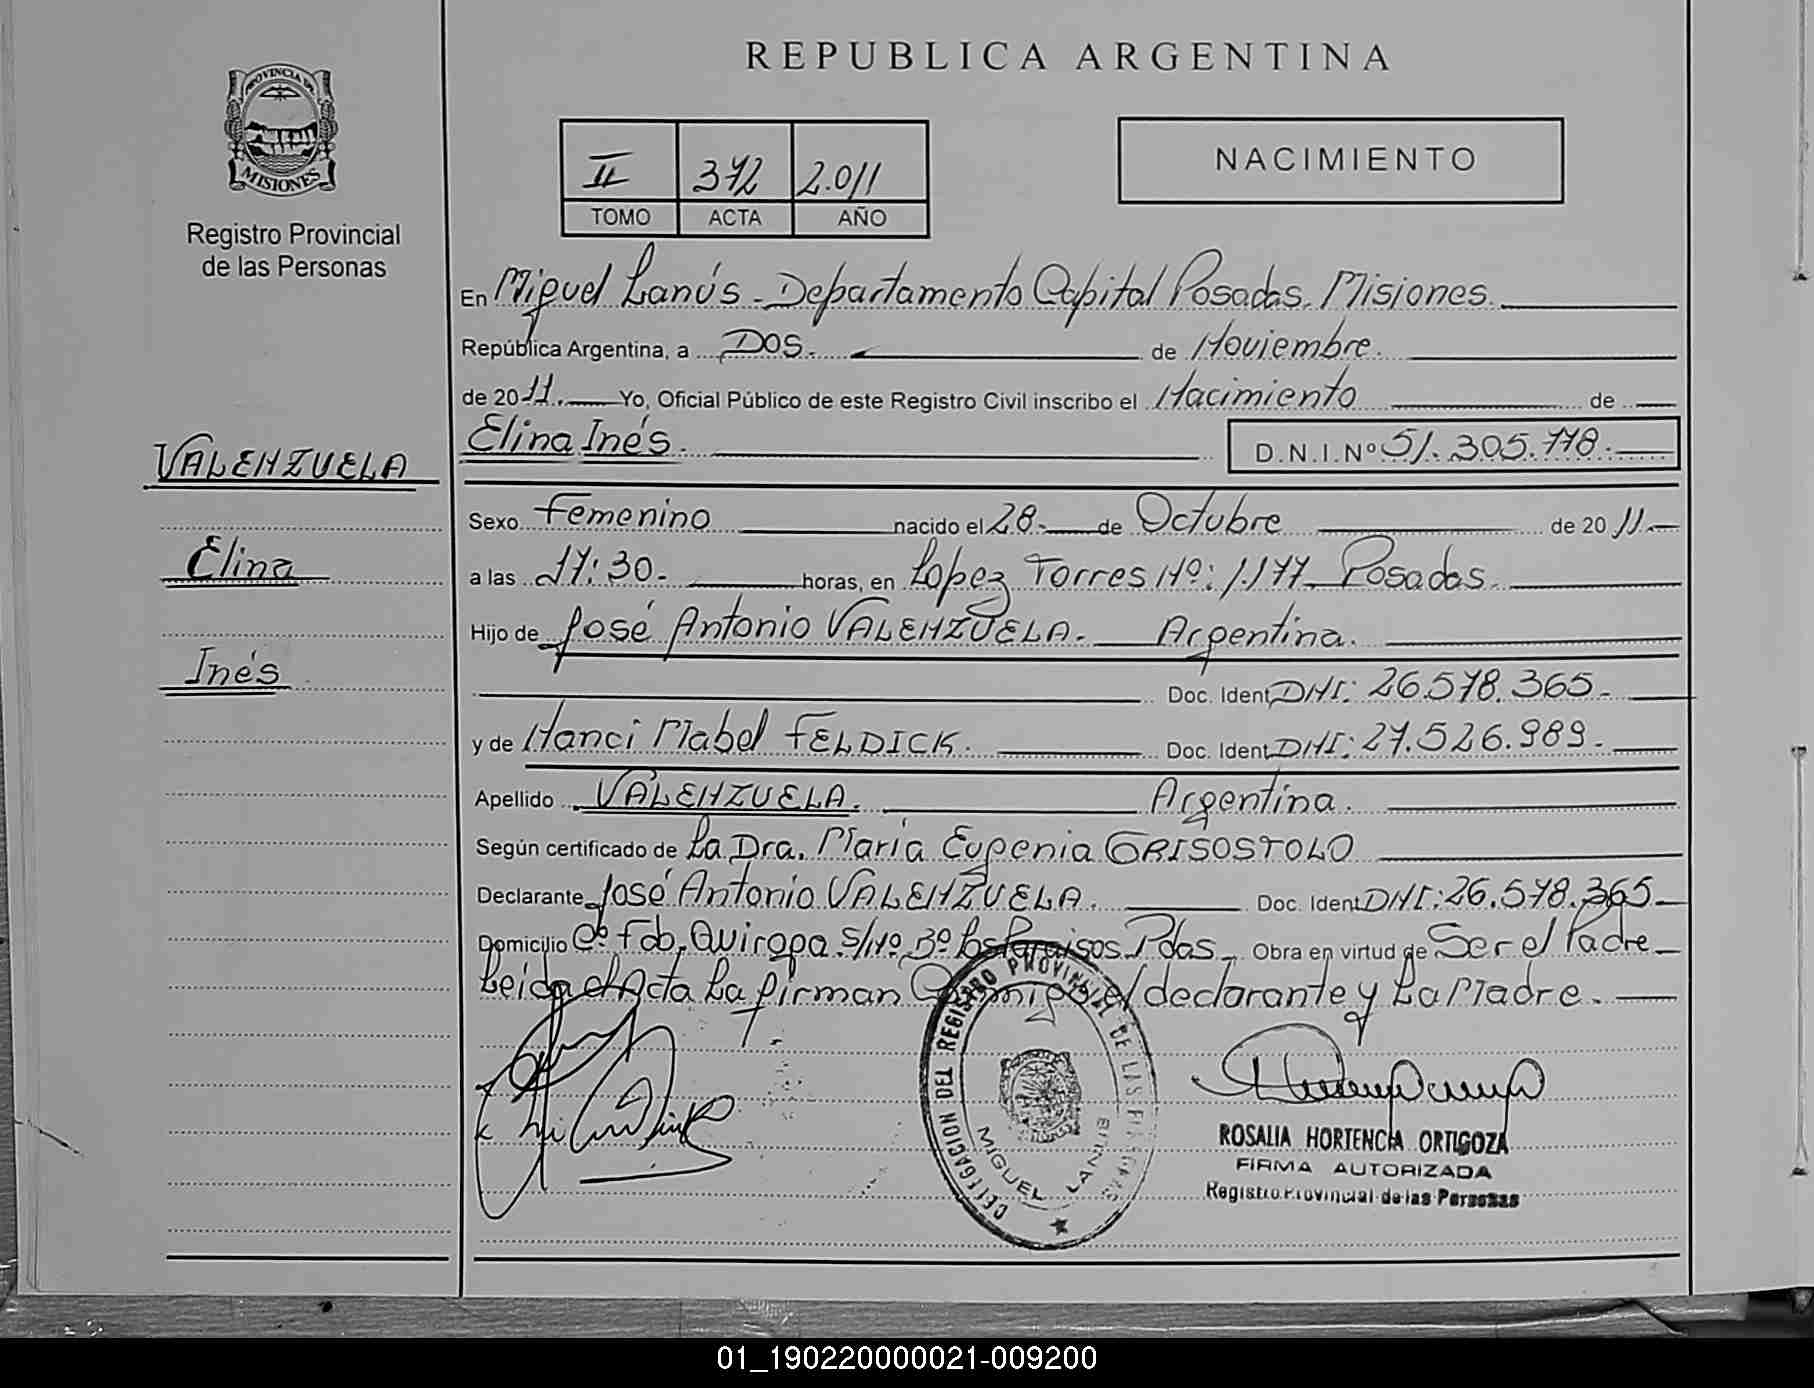 REPUBLICA ARGENTINA
PROVINCIA DE
MISIONES
Registro Provincial
de las Personas
II 372 2.011
TOMO ACTA AÑO
NACIMIENTO
En Miguel Lanús - Departamento Capital Posadas. Misiones.
República Argentina, a Dos. de Noviembre.
de 2011. Yo, Oficial Público de este Registro Civil inscribo el Nacimiento de
Elina Inés. D.N.I.Nº 51.305.778.
VALENZUELA
Elina
Inés
Sexo Femenino nacido el 28. de Octubre de 2011.
a las 17:30. horas, en Lopez Torres Nº: 1.177 Posadas.
Hijo de José Antonio VALENZUELA. Argentina.
Doc. Ident. DNI: 26.578.365.
y de Nanci Mabel FELDICK. Doc. Ident. DNI: 27.526.989.
Apellido VALENZUELA. Argentina.
Según certificado de La Dra. María Eugenia GRISOSTOLO
Declarante José Antonio VALENZUELA. Doc. Ident. DNI: 26.578.365
Domicilio Cº Fdo. Quiroga S/Nº Bº Los Paraisos Pdas. Obra en virtud de Ser el Padre
Leida el Acta La firman Conmigo el declarante y La Madre.
DELEGACION DEL REGISTRO PROVINCIAL DE LAS PERSONAS
MIGUEL LANUS
ROSALIA HORTENCIA ORTIGOZA
FIRMA AUTORIZADA
Registro Provincial de las Personas
01_190220000021-009200